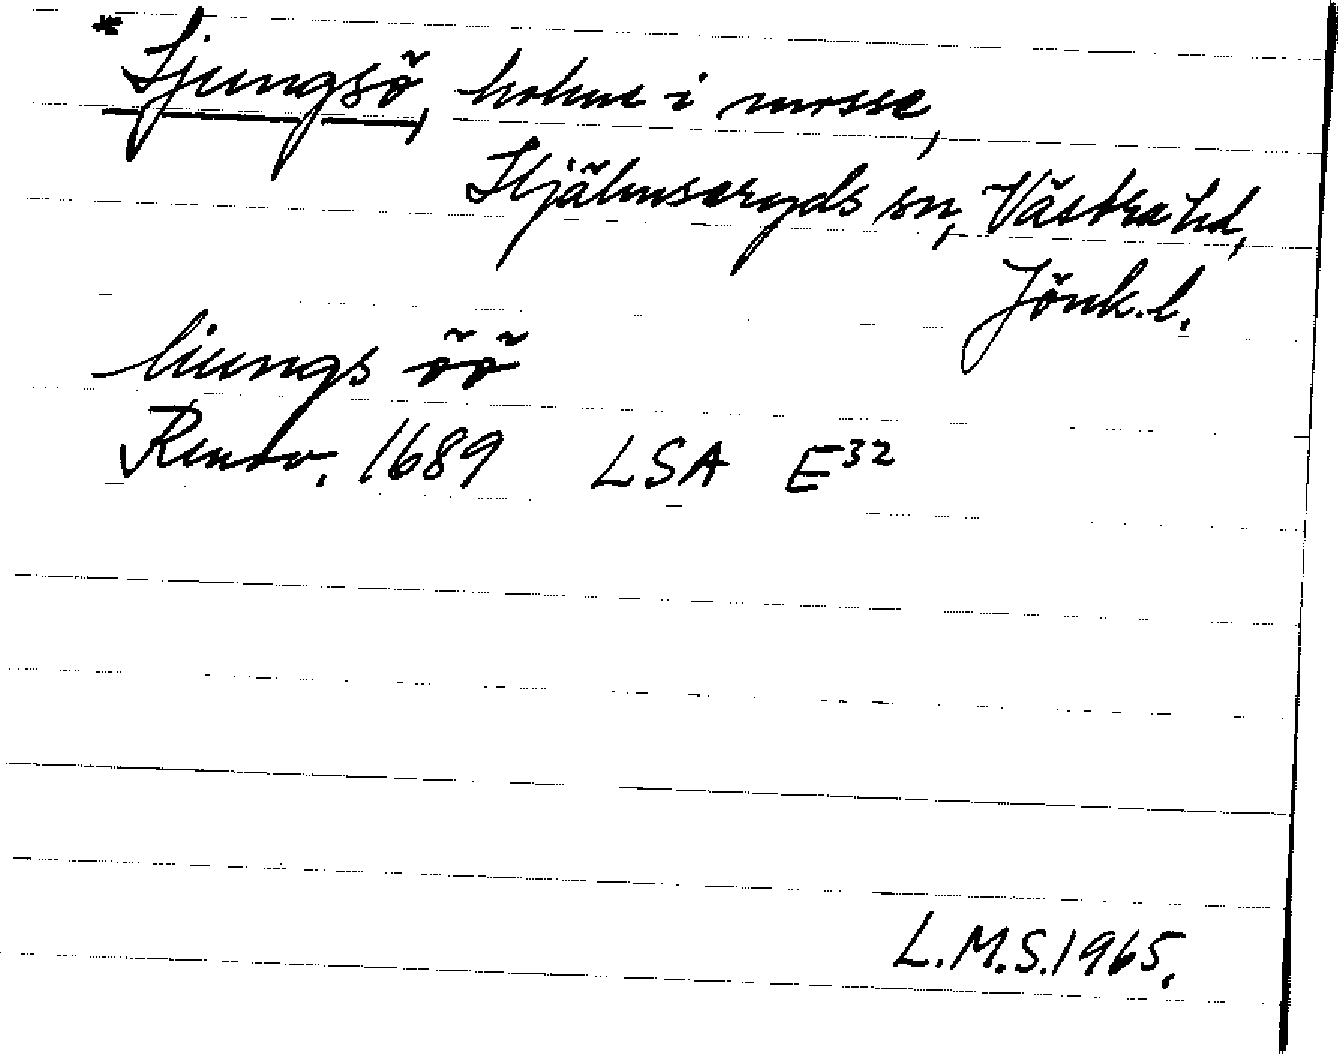 * Ljungsö, holme i mosse,
Hjälmseryds sn, Västra hd,
Jönk. l.
liungs öö
Renov. 1689 LSA E32
L.M.S. 1965.